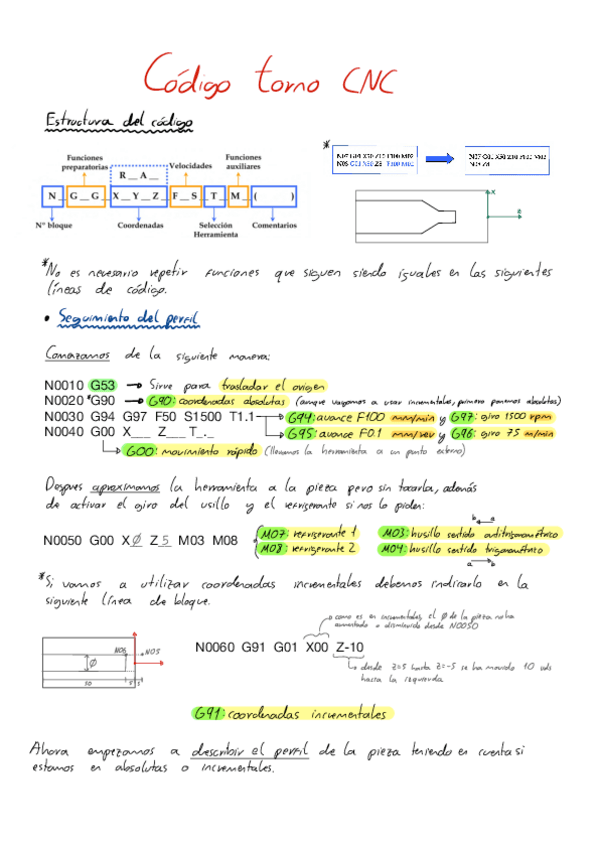 Código torno CNC
Estructura del código
Funciones preparatorias
R__A__
Velocidades
Funciones auxiliares
N__G__G__X__Y__Z__F__S__T__M__( )
Nº bloque
Coordenadas
Selección Herramienta
Comentarios
*
X
*No es necesario repetir funciones que siguen siendo iguales en las siguientes
líneas de código.
• Seguimiento del perfil
Comenzamos de la siguiente manera:
N0010 G53 → Sirve para trasladar el origen
N0020 *G90 → G90: coordenadas absolutas (aunque vayamos a usar incrementales, primero ponemos absolutas)
N0030 G94 G97 F50 S1500 T1.1 → G94: avance F100 mm/min y G97: giro 1500 rpm
N0040 G00 X___ Z___ T_._ G95: avance F0.1 mm/rev y G96: giro 75 m/min
G00: movimiento rápido (llevamos la herramienta a un punto externo)
Despues aproximamos la herramienta a la pieza pero sin tocarla, además
de activar el giro del usillo y el refrigerante si nos lo piden:
N0050 G00 X∅ Z5 M03 M08
M07: refrigerante 1
M08: refrigerante 2
M03: husillo sentido antitrigonométrico
M04: husillo sentido trigonométrico
*Si vamos a utilizar coordenadas incrementales debemos indicarlo en la
siguiente línea de bloque.
como es en incrementales, el ∅ de la pieza no ha
aumentado o disminuido desde N0050
N06
N05
∅
50
5
N0060 G91 G01 X00 Z-10
desde Z=5 hasta Z=-5 se ha movido 10 uds
hacia la izquierda
G91: coordenadas incrementales
Ahora empezamos a describir el perfil de la pieza teniendo en cuenta si
estamos en absolutas o incrementales.